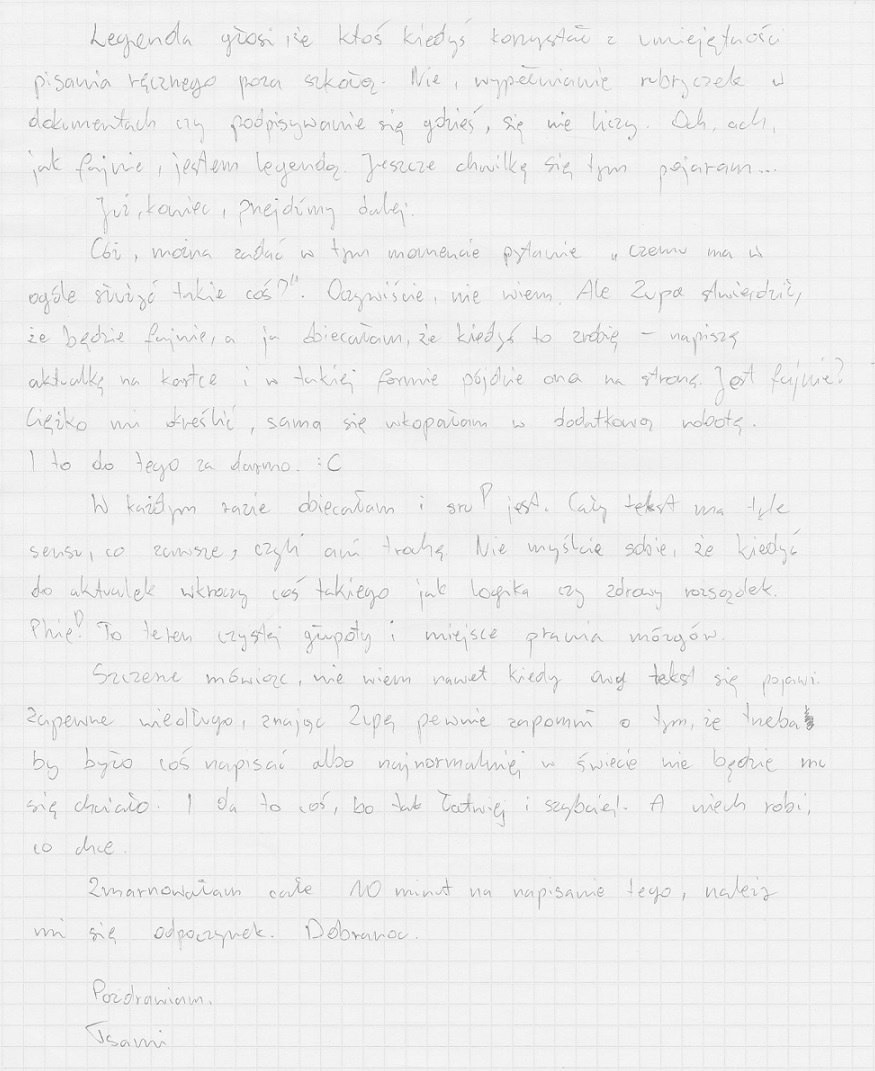 Legenda głosi, że ktoś kiedyś korzystał z umiejętności
pisania ręcznego poza szkołą. Nie, wypełnianie rubryczek w
dokumentach czy podpisywanie się gdzieś, się nie liczy. Och, ach,
jak fajnie, jestem legendą. Jeszcze chwilkę się tym pojaram...
Już, koniec, przejdźmy dalej.
Cóż, można zadać w tym momencie pytanie „czemu ma w
ogóle służyć takie coś?". Oczywiście, nie wiem. Ale Zupa stwierdził,
że będzie fajnie, a ja obiecałam, że kiedyś to zrobię – napiszę
aktualkę na kartce i w takiej formie pójdzie ona na stronę. Jest fajnie?
Ciężko mi określić, sama się wkopałam w dodatkową robotę.
I to do tego za darmo. :C
W każdym razie obiecałam i sru! jest. Cały tekst ma tyle
sensu, co zawsze, czyli ani trochę. Nie myślcie sobie, że kiedyś
do aktualek wkroczy coś takiego jak logika czy zdrowy rozsądek.
Phie! To teren czystej głupoty i miejsce prania mózgów.
Szczerze mówiąc, nie wiem nawet kiedy ów tekst się pojawi.
Zapewne niedługo, znając Zupę pewnie zapomni o tym, że trzeba
by było coś napisać albo najnormalniej w świecie nie będzie mu
się chciało. I da to coś, bo tak łatwiej i szybciej. A niech robi,
co chce.
Zmarnowałam całe 10 minut na napisanie tego, należy
mi się odpoczynek. Dobranoc.
Pozdrawiam.
Tsami